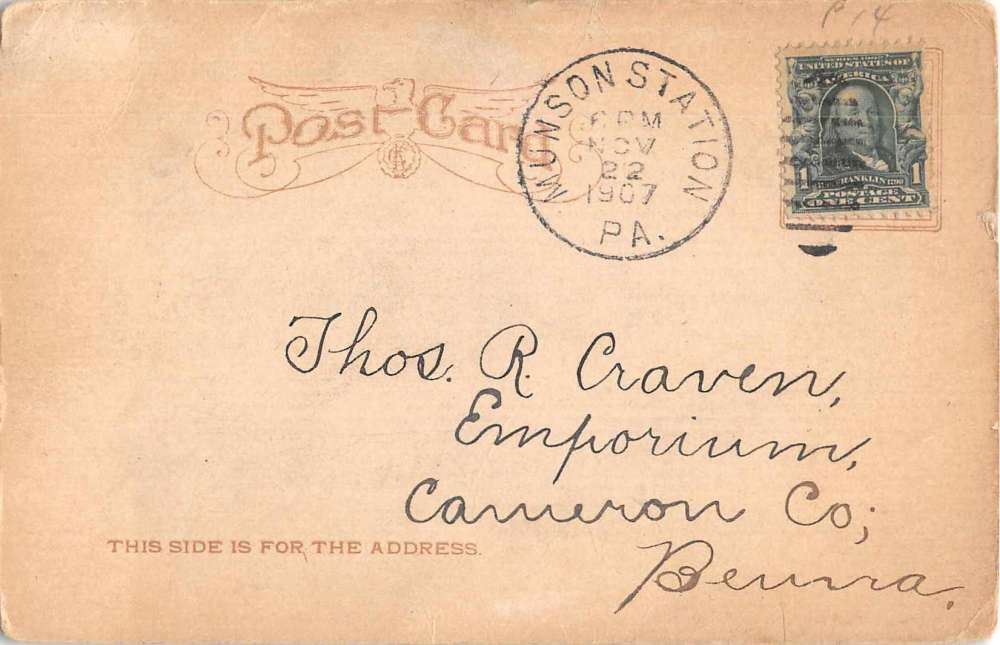 P 14
Post Card
MUNSON STATION
PM
NOV
22
1907
PA.
SERIES 1902
UNITED STATES OF
AMERICA
1 FRANKLIN 1
POSTAGE
ONE CENT
Thos. R. Craven,
Emporium,
Cameron Co;
Penna.
THIS SIDE IS FOR THE ADDRESS.